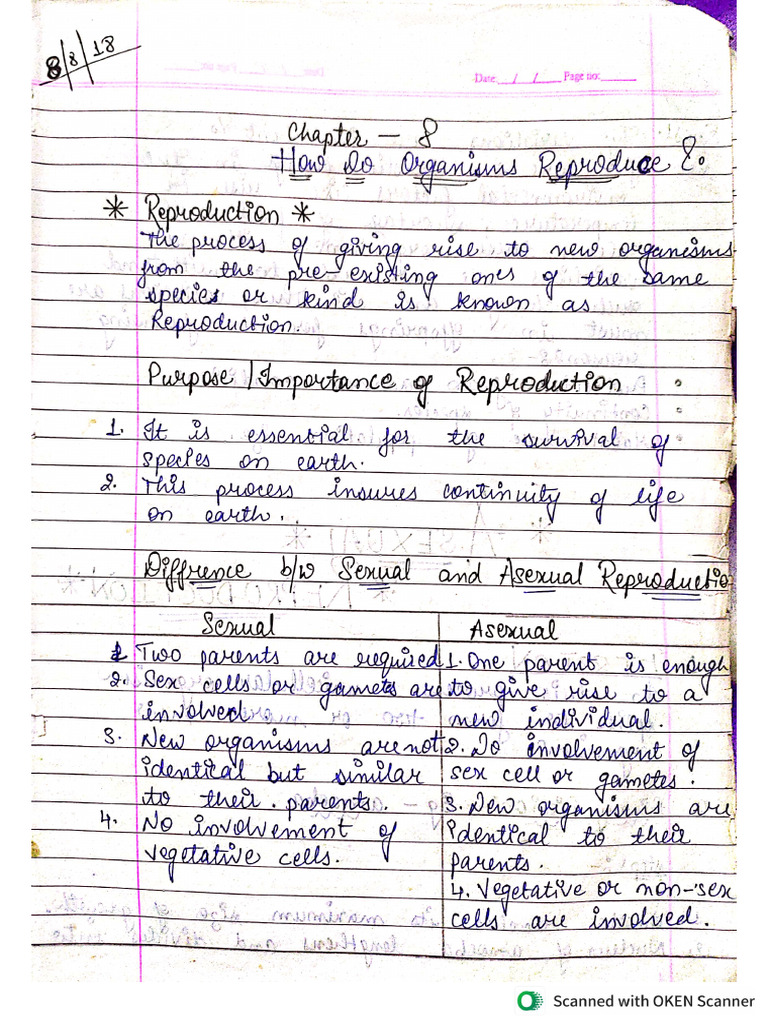 8/8/18
Date: / / Page no:
Chapter - 8
How Do Organisms Reproduce ?.
* Reproduction *
The process of giving rise to new organisms
from the pre-existing ones of the same
species or kind is known as
Reproduction.
Purpose / Importance of Reproduction :
1. It is essential for the survival of
species on earth.
2. This process insures continuity of life
on earth.
Diffrence b/w Sexual and Asexual Reproductio
Sexual
1 Two parents are required
2. Sex cells or gametes are
involved
3. New organisms are not
identical but similar
to their parents.
4. No involvement of
vegetative cells.
Asexual
1. One parent is enough
to give rise to a
new individual.
2. No involvement of
sex cell or gametes.
3. New organisms are
identical to their
parents.
4. Vegetative or non-sex
cells are involved.
Scanned with OKEN Scanner